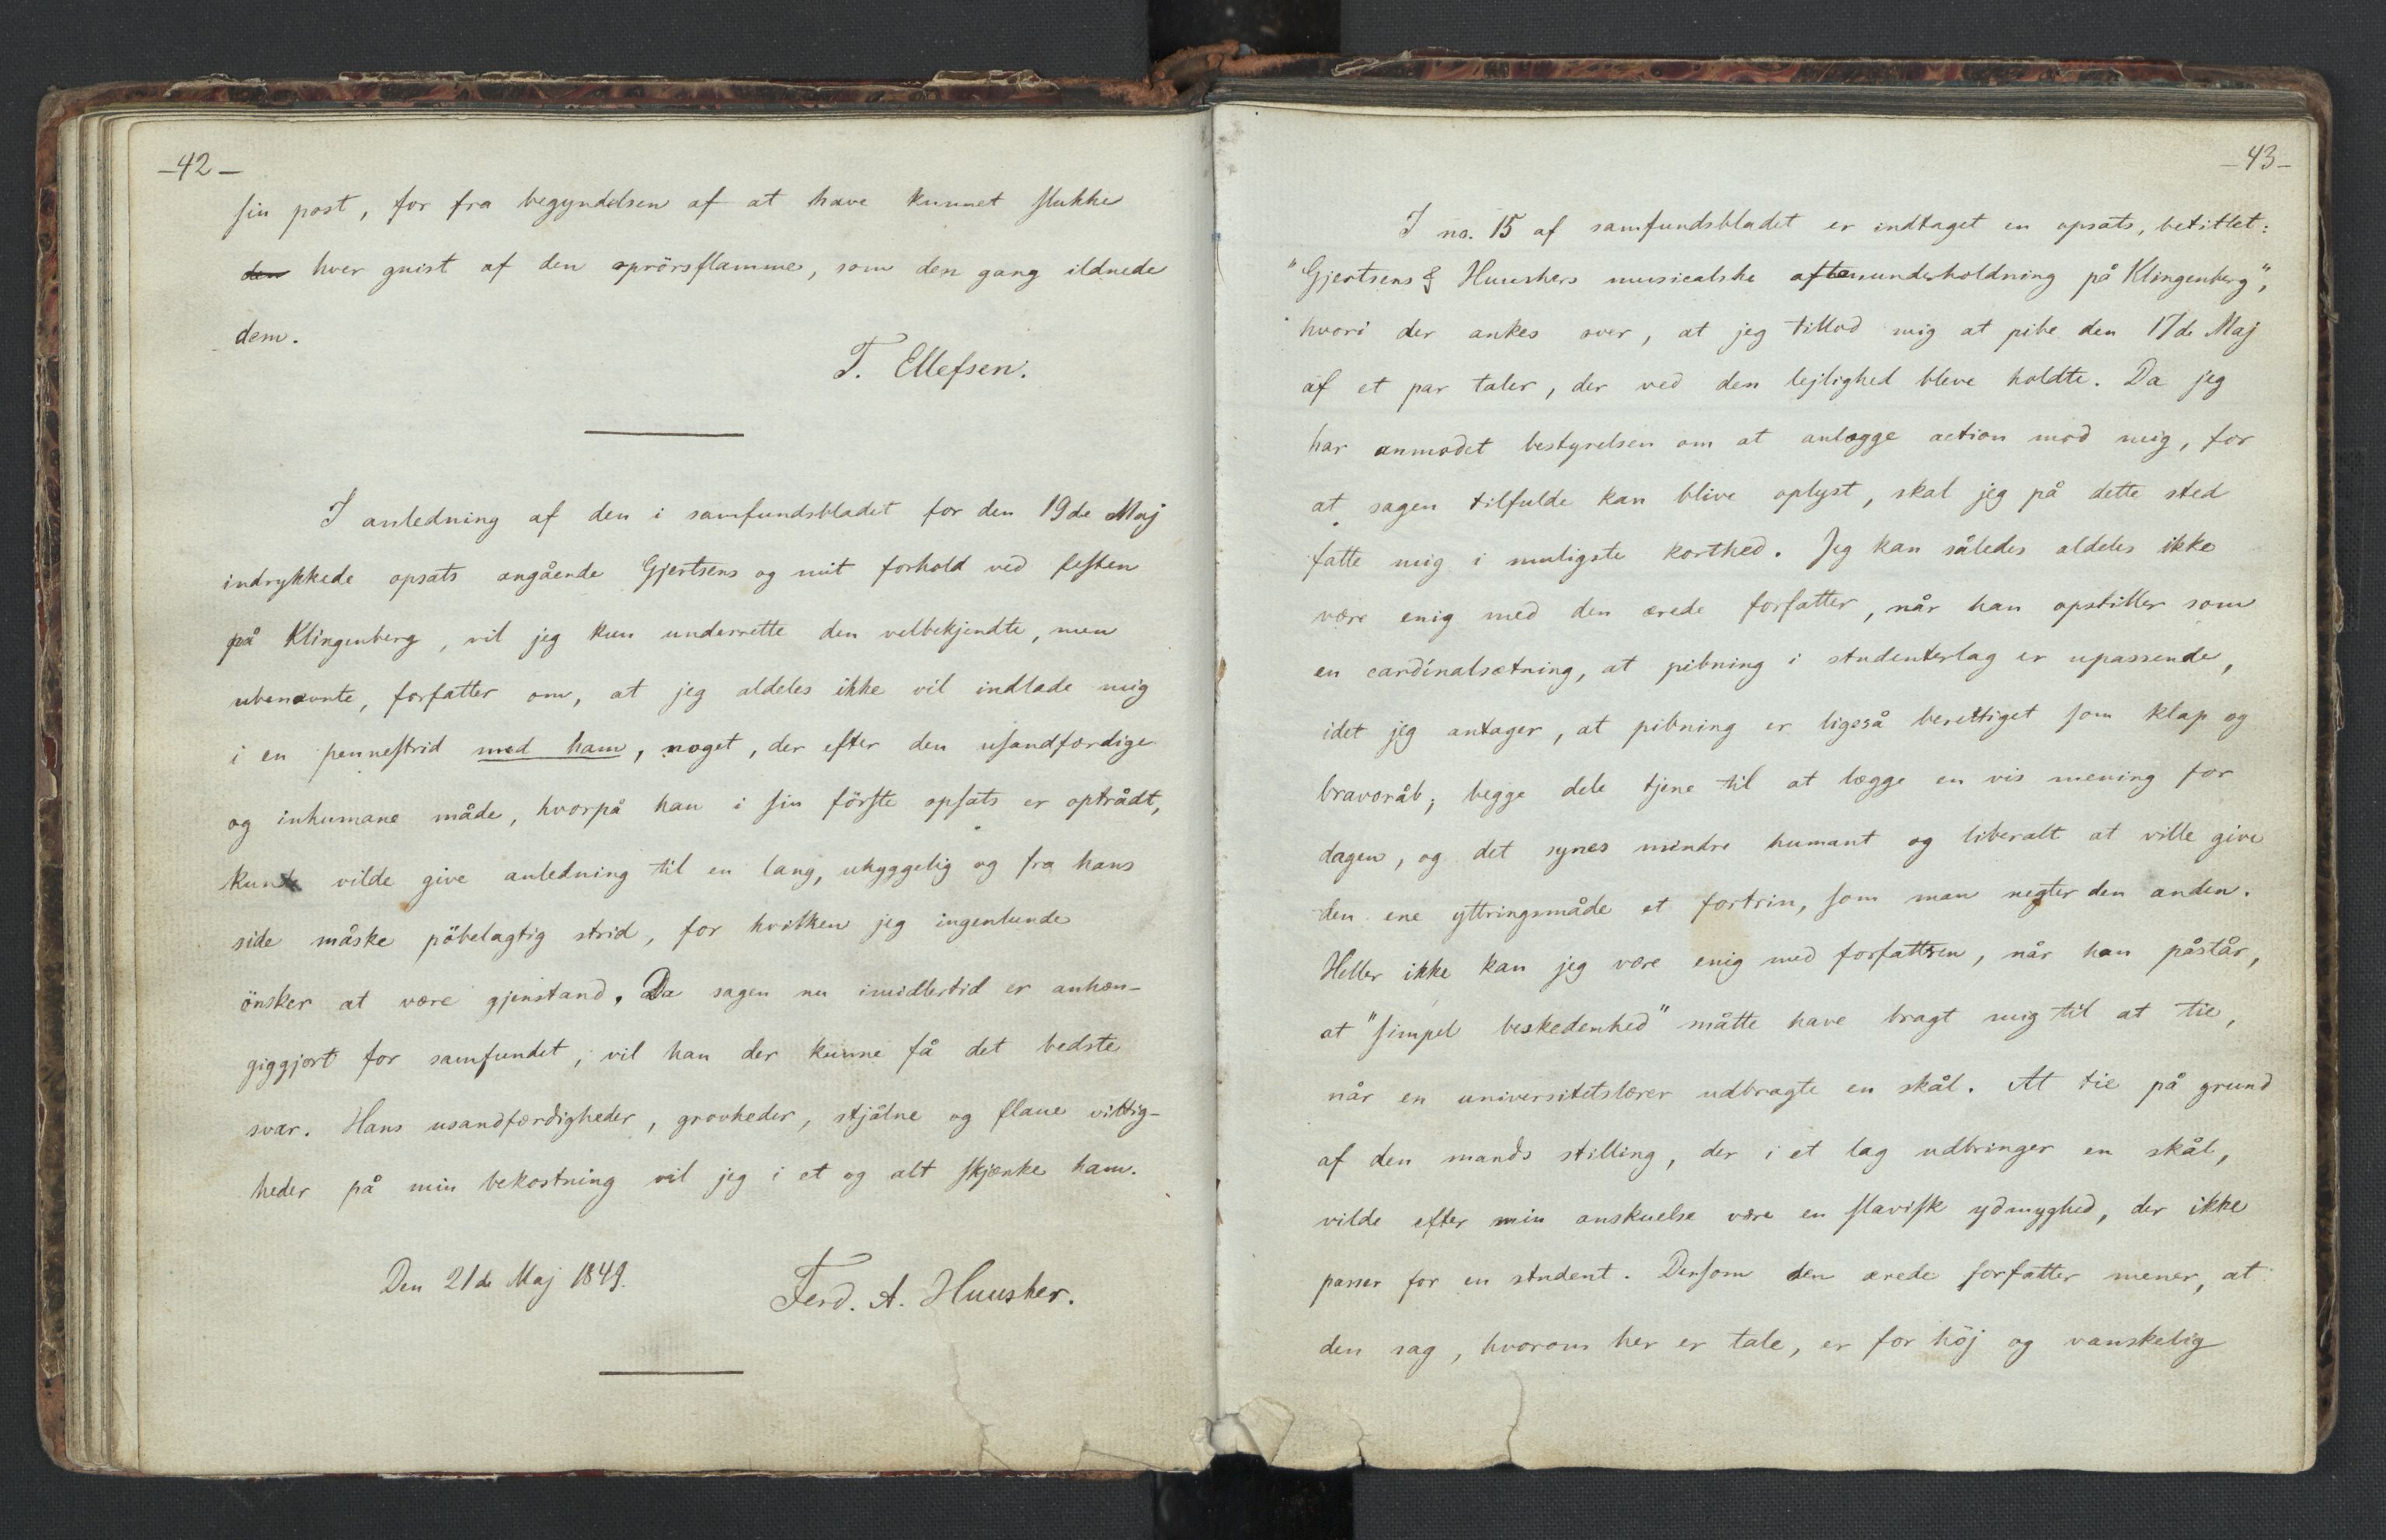 -42-
sin post, for fra begyndelsen af at have kunnet slukke
den hver gnist af den oprörsflamme, som den gang ildnede
dem.
T. Ellefsen.
I anledning af den i samfundsbladet for den 19de Maj
indrykkede opsats angående Gjertsens og mit forhold ved festen
på Klingenberg, vil jeg kun underrette den velbekjendte, men
ubenævnte, forfatter om, at jeg aldeles ikke vil indlade mig
i en pennestrid med ham, noget, der efter den usandfærdige
og inhumane måde, hvorpå han i sin förste opsats er optrådt,
kun vilde give anledning til en lang, uhyggelig og fra hans
side måske pöbelagtig strid, for hvilken jeg ingenlunde
önsker at være gjenstand. Da sagen nu imidlertid er anhæn-
giggjort for samfundet, vil han der kunne få det bedste
svar. Hans usandfærdigheder, grovheder, stjålne og flaue vittig-
heder på min bekostning vil jeg i et og alt skjænke ham.
Den 21de Maj 1849.
Ferd. A. Huusher.
-43-
I no. 15 af samfundsbladet er indtaget en opsats, betitlet:
"Gjertsens & Huushers musicalske aftenunderholdning på Klingenberg",
hvori der ankes over, at jeg tillod mig at pibe den 17de Maj
af et par taler, der ved den lejlighed bleve holdte. Da jeg
har anmodet bestyrelsen om at anlægge action mod mig, for
at sagen tilfulde kan blive oplyst, skal jeg på dette sted
fatte mig i muligste korthed. Jeg kan således aldeles ikke
være enig med den ærede forfatter, når han opstiller som
en cardinalsætning, at pibning i studenterlag er upassende,
idet jeg antager, at pibning er ligeså berettiget som klap og
bravoråb; begge dele tjene til at lægge en vis mening for
dagen, og det synes mindre humant og liberalt at ville give
den ene yttringsmåde et fortrin, som man negter den anden.
Heller ikke kan jeg være enig med forfattren, når han påstår,
at "simpel beskedenhed" måtte have bragt mig til at tie,
når en universitetslærer udbragte en skål. At tie på grund
af den mands stilling, der i et lag udbringer en skål,
vilde efter min anskuelse være en slavisk ydmyghed, der ikke
passer for en student. Dersom den ærede forfatter mener, at
den sag, hvorom her er tale, er for höj og vanskelig